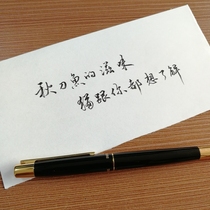 秋刀魚的滋味
貓跟你都想了解